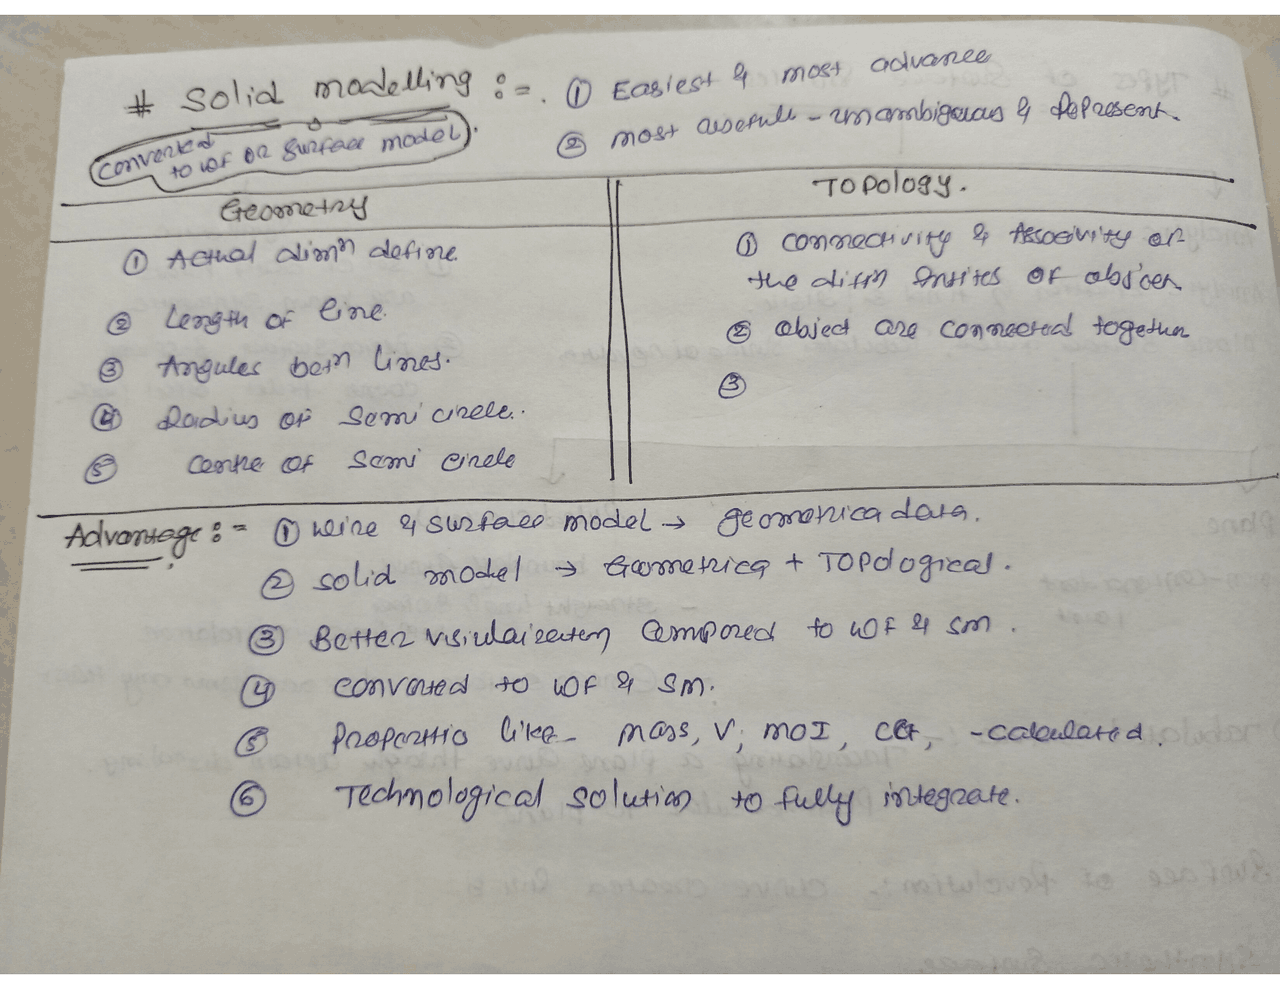 # Solid modelling :- . ① Easiest & most advance
② most usefull - unambiguous & Represent.
(converted to WF or Surface model).
Geometry
① Actual dimn define.
② Length of line.
③ Angules betn lines.
④ Radius of Semi circle.
⑤ Centre of Semi Circle
TOPOlogy.
① connectivity & Associvity of
the diffn entites of object
② object are connected together
③
Advantage :- ① wire & surface model → geometrica data.
② solid model → Geometrica + TOPOlogical.
③ Better Compored to WF & sm.
④ converted to WF & sm.
⑤ like - mass, V, MOI, CG, - calculated.
⑥ Technological solution to fully integrate.